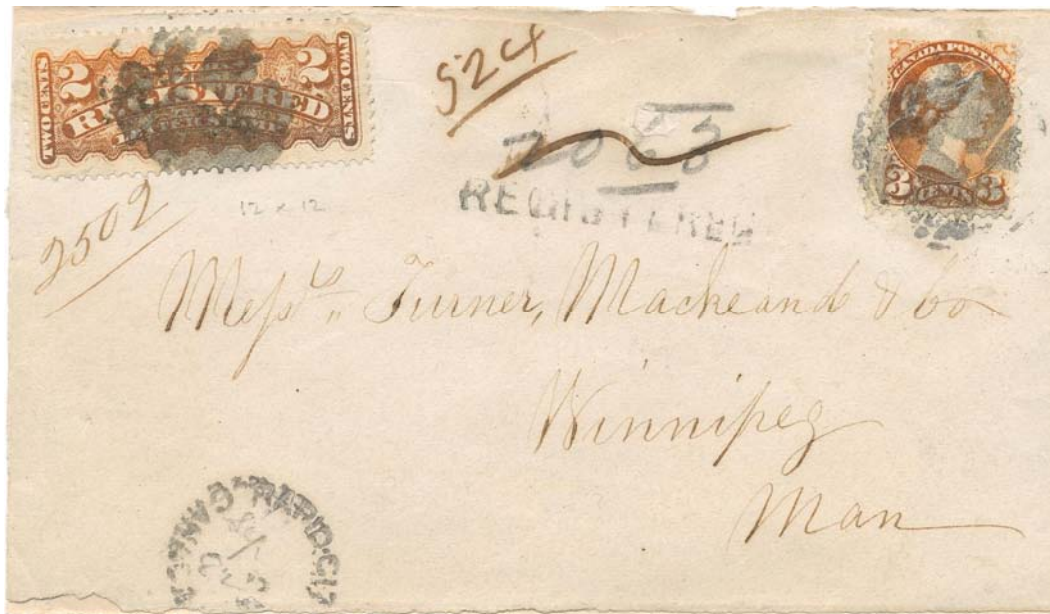 TWO CENTS 2 REGISTERED 2 TWO CENTS
CANADA POSTAGE
3 CENTS 3
524
2063
REGISTERED
12 x 12
2502
Messrs Turner, Mackeand & Co
Winnipeg
Man
RAPID CIT
CANADA